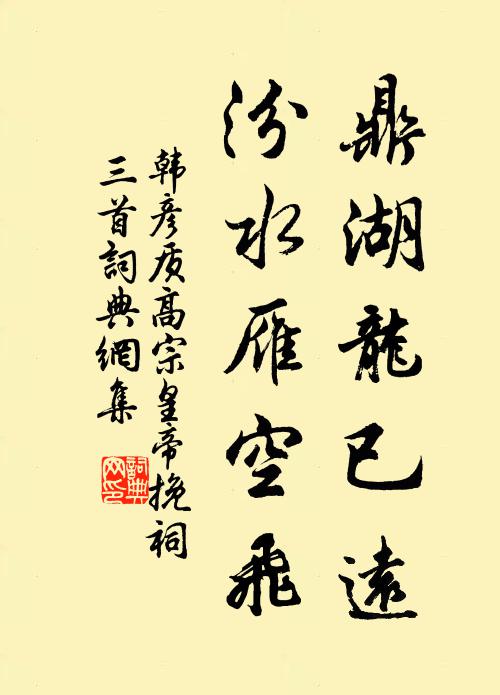 鼎湖龍已遠
汾水雁空飛
韩彦质高宗皇帝挽祠
三首詞典網集
詞典网印